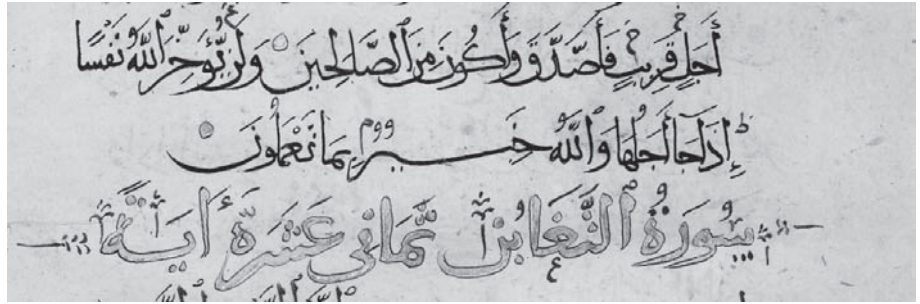 أَجَلٍ قَرِيبٍ فَأَصَّدَّقَ وَأَكُونَ مِنَ ٱلصَّالِحِينَ وَلَن يُؤَخِّرَ ٱللَّهُ نَفْسًا
إِذَا جَا أَجَلُهَا وَٱللَّهُ خَبِيرٌ بِمَا تَعْمَلُونَ
سُورَةُ ٱلتَّغَابُنِ ثَمَانِي عَشْرَةَ ءَايَةً